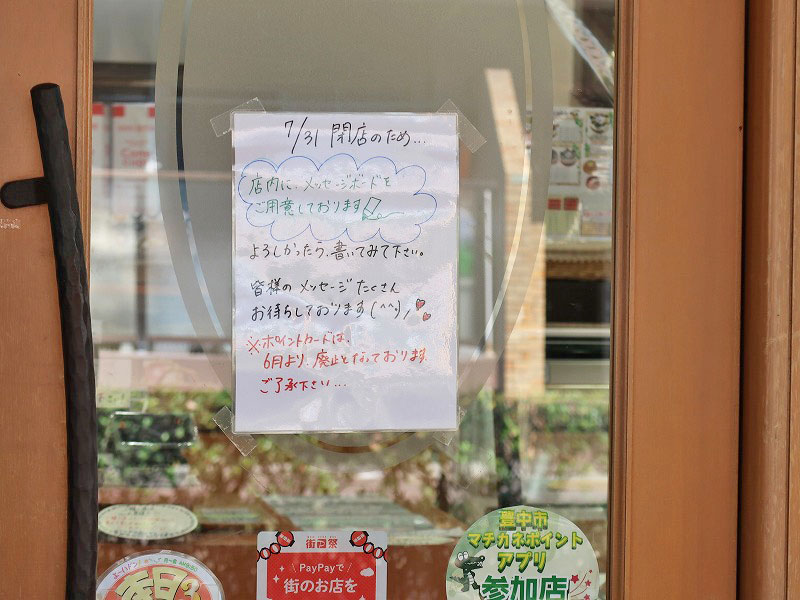 7/31 閉店のため...
店内に、メッセージボードを
ご用意しております
よろしかったら、書いてみて下さい。
皆様のメッセージたくさん
お待ちしております(^^)
※ポイントカードは、
6月より、廃止となっております。
ご了承下さい...
街のお店を
PayPayで
豊中市
マチカネポイント
アプリ
参加店